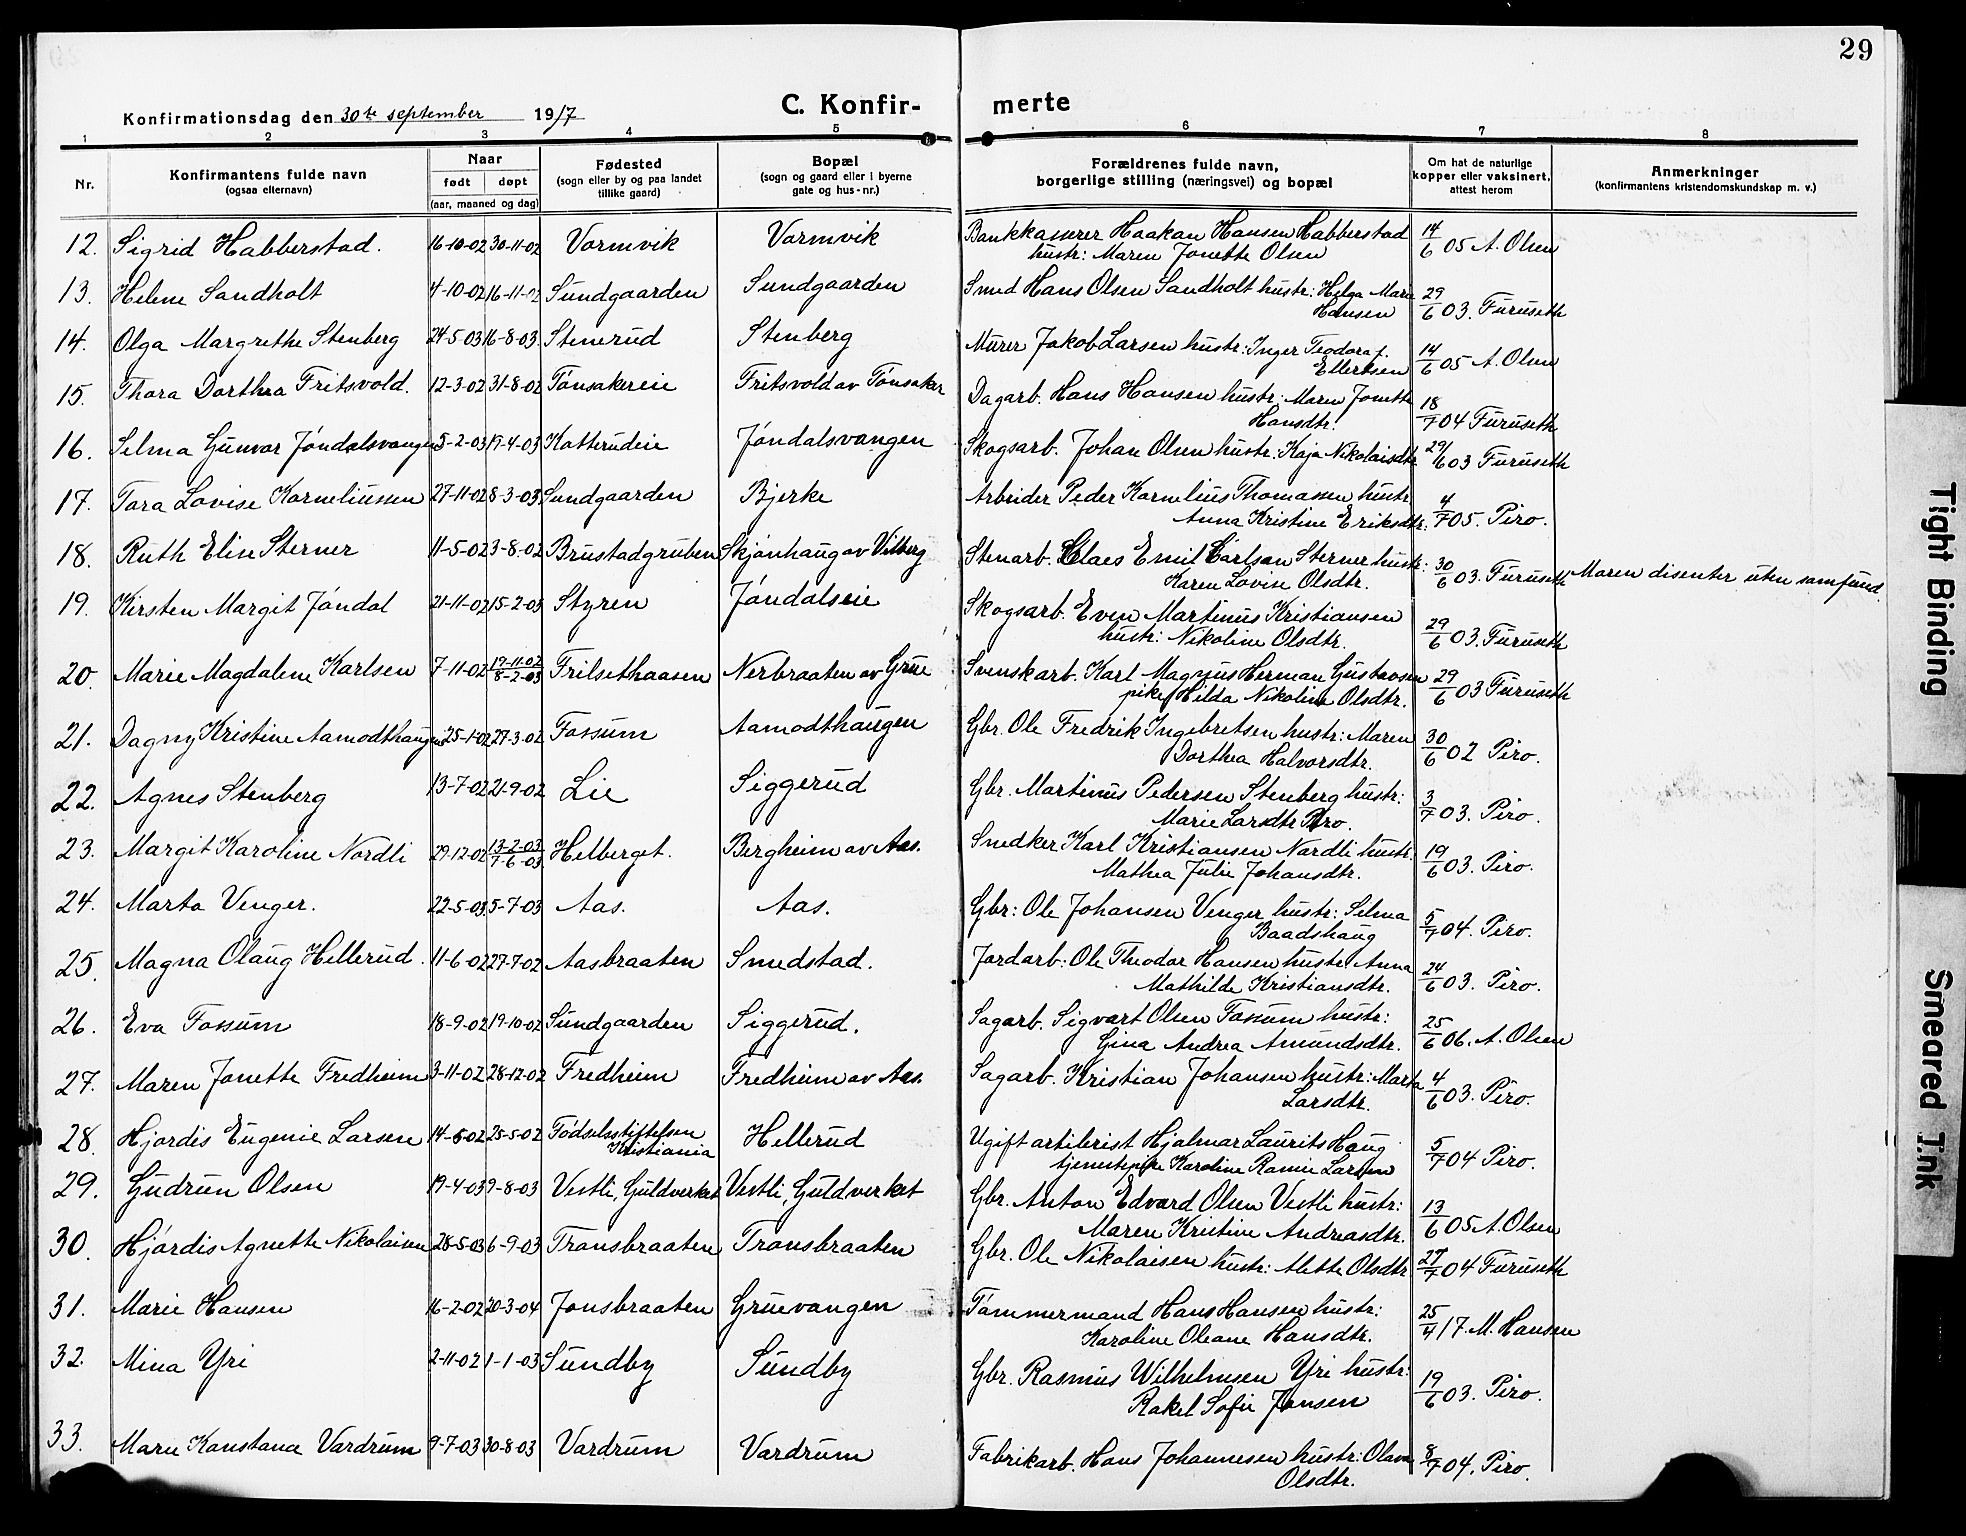 29
Konfirmationsdag den 30te september 1917 C. Konfir- merte
1 2 3 4 5 6 7 8
Nr. Konfirmantens fulde navn (ogsaa efternavn) Naar født døpt (aar, maaned og dag) Fødested (sogn eller by og paa landet tillike gaard) Bopæl (sogn og gaard eller i byerne gate og hus-nr.) Forældrenes fulde navn, borgerlige stilling (næringsvei) og bopæl Om hat de naturlige kopper eller vaksinert, attest herom Anmerkninger (konfirmantens kristendomskundskap m. v.)
12. Sigrid Habberstad. 16-10-02 30-11-02 Vormvik Vormvik Bankkasserer Haakan Hansen Habberstad 14/6 05 A. Olsen
hustr: Maren Jonette Olsen
13. Helene Sandholt 4-10-02 16-11-02 Sundgaarden Sundgaarden Smed Hans Olsen Sandholt hustr: Helga Marie 29/6 03. Furuseth
Hansen
14. Olga Margrethe Stenberg 24-5-03 16-8-03. Stenerud Stenberg Murer Jakob Larsen hustr: Inger Teodora f. 14/6 05 A. Olsen
Ellertsen
15. Thora Dorthea Fritsvold. 12-3-02 31-8-02 Tønsakereie Fritsvold av Tønsaker Dagarb. Hans Hansen hustr: Maren Jonette 18/7 04 Furuseth
Hansdtr.
16. Selma Gunvor Jøndalsvangen 5-2-03 19-4-03 Katterudeie Jøndalsvangen Skogsarb. Johan Olsen hustr: Kaja Nikolaisdtr. 29/6 03 Furuseth
17. Tora Lovise Korneliussen 27-11-02 8-3-03 Sundgaarden Bjerke Arbeider Peder Kornelius Thomassen hustr 4/7 05. Piro.
Anna Kristine Eriksdtr.
18. Ruth Elin Sterner 11-5-02 3-8-02 Brustadgruben Skjønhaug av Vilberg Stenarb. Claes Emil Carlson Sterner hustr: 30/6 03. Furuseth Maren disenter uten samfund.
Karen Lovise Olsdtr.
19. Kirsten Margit Jøndal 21-11-02 15-2-03 Styren Jøndalseie Skogsarb. Even Martinus Kristiansen 29/6 03. Furuseth
hustr: Nikoline Olsdtr.
20. Marie Magdalene Karlsen 7-11-02 19-11-02 8-2-03 Frilsethaasen Nerbraaten av Grue Svenskarb. Karl Magnus Herman Gustavsen 29/6 03 Furuseth
pike Hilda Nikoline Olsdtr.
21. Dagny Kristine Aamodthaugen 25-1-02 27-3-02 Fossum Aamodthaugen Gbr. Ole Fredrik Ingebretsen hustr: Maren 30/6 02 Piro.
Dorthea Halvorsdtr.
22. Agnes Stenberg 13-7-02 21-9-02 Lie Siggerud Gbr. Martinus Pedersen Stenberg hustr: 3/7 03. Piro.
Marie Larsdtr Piro.
23. Margit Karoline Nordli 29-12-02 13-2-03 7-6-03 Helberget. Bergheim av Aas. Snedker Karl Kristiansen Nordli hustr. 19/6 03. Piro.
Mathea Julie Johansdtr.
24. Marta Venger. 22-5-03 5-7-03 Aas. Aas. Gbr: Ole Johansen Venger hustr: Selma 5/7 04. Piro.
Baadshaug
25. Magna Olaug Hellerud. 11-6-02 27-7-02 Aasbraaten Smedstad. Jordarb: Ole Theodor Hansen hustr: Anna 24/6 03. Piro.
Mathilde Kristiansdtr.
26. Eva Fossum 18-9-02 19-10-02 Sundgaarden Siggerud. Sagarb. Sigvart Olsen Fossum hustr: 25/6 06. A. Olsen
Gina Andrea Amundsdtr.
27. Maren Jonette Fredheim 3-11-02 28-12-02 Fredheim Fredheim av Aas. Sagarb. Kristian Johansen hustr: Marta 4/6 03. Piro.
Larsdtr.
28. Hjordis Eugenie Larsen 14-5-02 25-5-02 Fødselsstiftelsen Kristiania Hellerud Ugift artilerist Hjalmar Laurits Haug 5/7 04 Piro.
tjenestepike Karoline Ramie Larsen
29. Gudrun Olsen 19-4-03 9-8-03 Vestli, Guldverket Vestli, Guldverket Gbr. Anton Edvard Olsen Vestli hustr: 13/6 05 A. Olsen
Maren Kristine Andreasdtr.
30. Hjørdis Agnette Nikolaisen 28-5-03 6-9-03 Transbraaten Transbraaten Gbr. Ole Nikolaisen hustr: Alette Olsdtr 27/7 04 Furuseth
31. Marie Hansen 16-2-02 20-3-04 Jonsbraaten Gruevangen Tømmermand Hans Hansen hustr: 25/4 17. M. Hansen
Karoline Oleane Hansdtr.
32. Mina Yri 2-11-02 1-1-03 Sundby Sundby Gbr. Rasmus Wilhelmsen Yri hustr: 19/6 03. Piro.
Rakel Sofie Jonsen
33. Marie Konstanse Vardrum 9-7-03 30-8-03 Vardrum Vardrum Fabrikarb. Hans Johannesen hustr: Olava 8/7 04. Piro.
Olsdtr.
Tight Binding
Smeared Ink